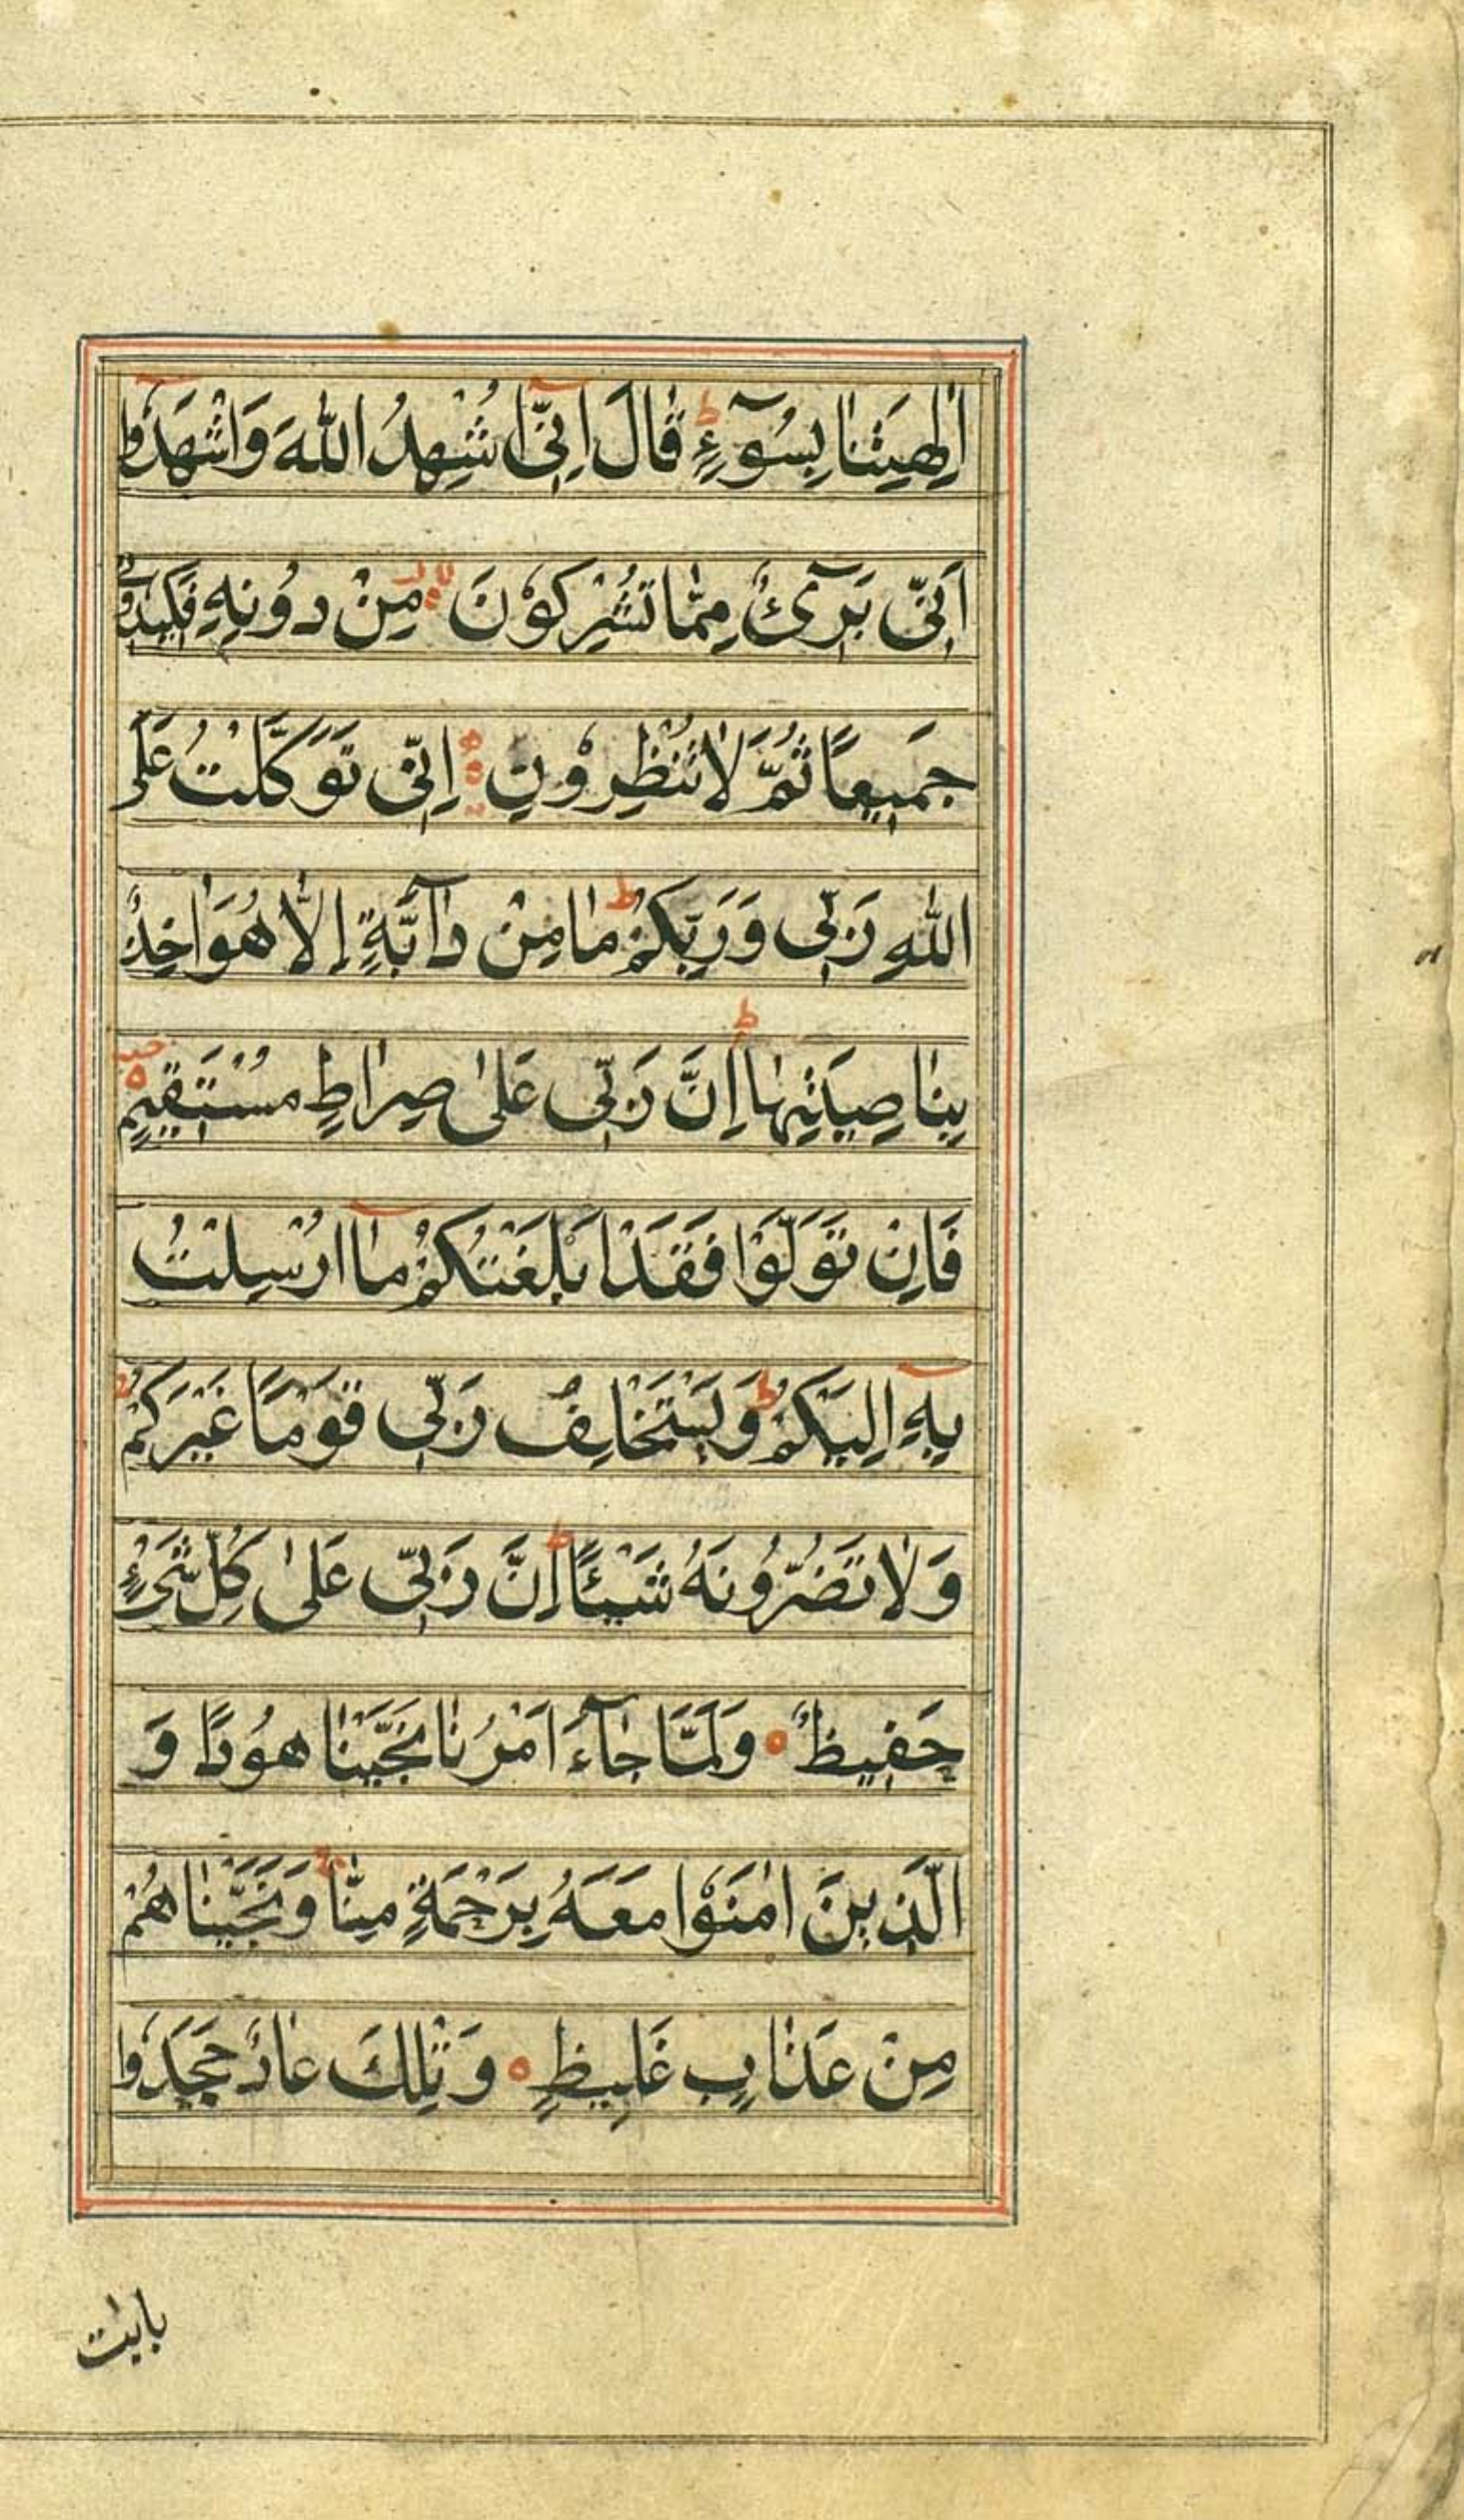 اٰلِهَتِنٰا بِسُوۤءٍ ط قٰالَ اِنّٓى اُشْهِدُ اللّٰهَ وَاشْهَدُوٓا
اَنّى بَرٓىءٌ مِمّٰا تُشْرِكُوْنَ لا مِنْ دُونِهِ فَكيدُونى
جَميعًا ثُمَّ لٰا تُنْظِرُوْنِ ه اِنّى تَوَكَّلْتُ عَلَى
اللّٰهِ رَبّى وَرَبِّكُمْ ط مٰا مِنْ دٰآبَّةٍ اِلّٰا هُوَ اٰخِذٌ
بِنٰاصِيَتِهٰا ط اِنَّ رَبّى عَلىٰ صِرٰاطٍ مُسْتَقيمٍ ه
فَاِنْ تَوَلَّوْا فَقَدْ اَبْلَغْتُكُمْ مٰآ اُرْسِلْتُ
بِهٓ اِلَيْكُمْ ط وَيَسْتَخْلِفُ رَبّى قَوْمًا غَيْرَكُمْ
وَلٰا تَضُرُّونَهُ شَيْئًا ط اِنَّ رَبّى عَلىٰ كُلِّ شَىْءٍ
حَفيظٌ ه وَلَمّٰا جٰآءَ اَمْرُنٰا نَجَّيْنٰا هُودًا وَ
الَّذينَ اٰمَنُوْا مَعَهُ بِرَحْمَةٍ مِنّٰا وَنَجَّيْنٰاهُمْ
مِنْ عَذٰابٍ غَليظٍ ه وَتِلْكَ عٰادٌ جَحَدُوا
بايٰت